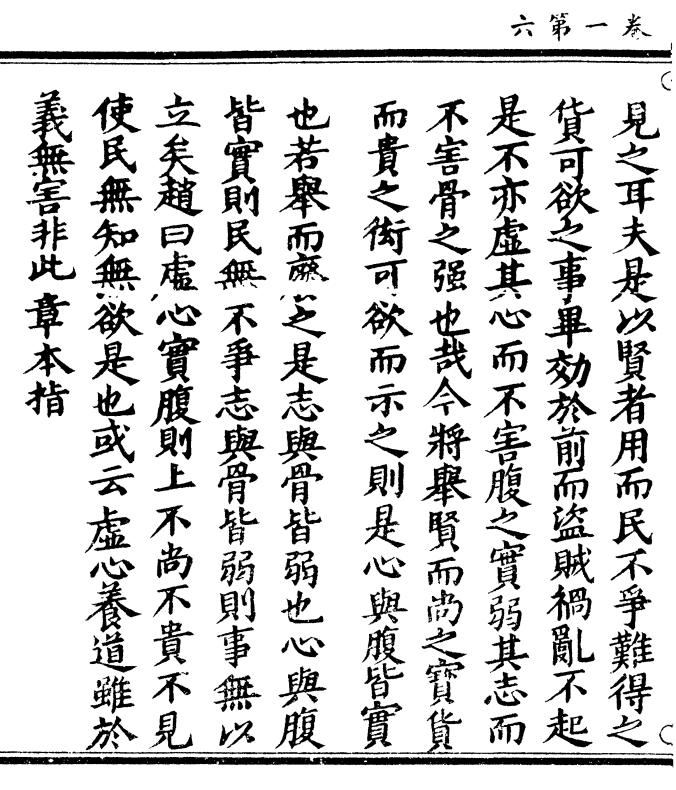 卷一第六
見之耳夫是以賢者用而民不爭難得之
貨可欲之事畢効於前而盜賊禍亂不起
是不亦虛其心而不害腹之實弱其志而
不害骨之强也哉今將舉賢而尚之寶貨
而貴之衒可欲而示之則是心與腹皆實
也若舉而廢之是志與骨皆弱也心與腹
皆實則民無不爭志與骨皆弱則事無以
立矣趙曰虛心實腹則上不尚不貴不見
使民無知無欲是也或云虛心養道雖於
義無害非此章本指